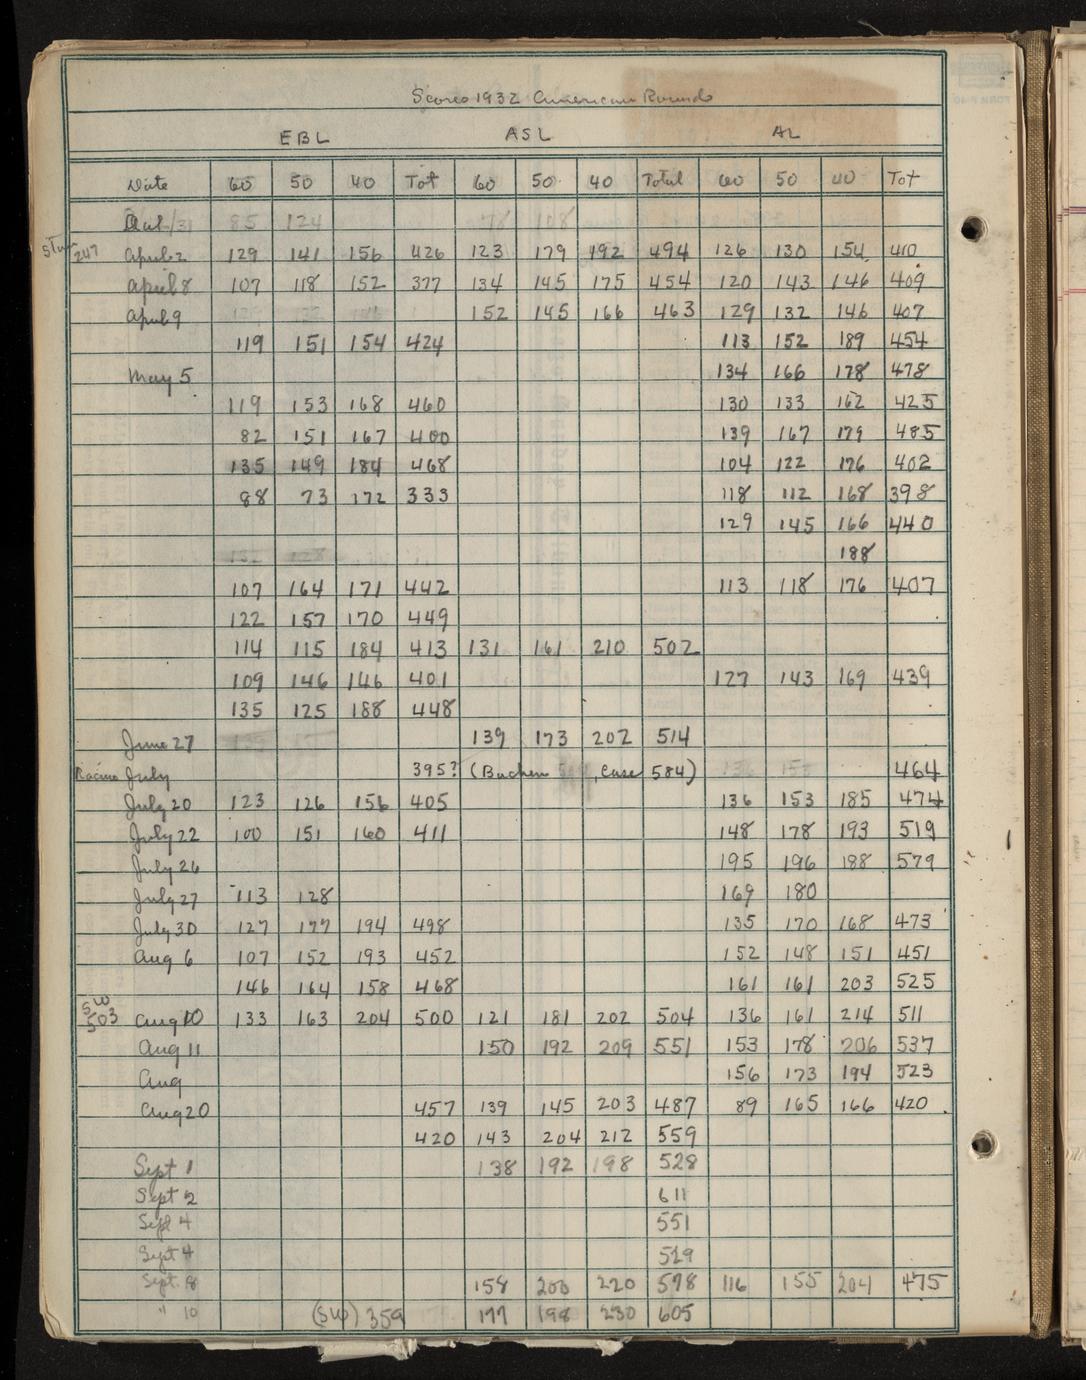 Scores 1932 American Rounds
EBL ASL AL
Date 60 50 40 Tot 60 50 40 Total 60 50 40 Tot
/31 85 124 78 108
247 April 2 129 141 156 426 123 179 192 494 126 130 154 410
April 8 107 118 152 377 134 145 175 454 120 143 146 409
April 9 152 145 166 463 129 132 146 407
119 151 154 424 113 152 189 454
May 5 134 166 178 478
119 153 168 460 130 133 162 425
82 151 167 400 139 167 179 485
135 149 184 468 104 122 176 402
88 73 172 333 118 112 168 398
129 145 166 440
132 128 188
107 164 171 442 113 118 176 407
122 157 170 449
114 115 184 413 131 161 210 502
109 146 146 401 127 143 169 439
135 125 188 448
June 27 139 173 202 514
Racine July 395? (Buchen , Case 584) 136 153 464
July 20 123 126 156 405 136 153 185 474
July 22 100 151 160 411 148 178 193 519
July 26 195 196 188 579
July 27 113 128 169 180
July 30 127 177 194 498 135 170 168 473
Aug 6 107 152 193 452 152 148 151 451
146 164 158 468 161 161 203 525
SW 503 Aug 10 133 163 204 500 121 181 202 504 136 161 214 511
Aug 11 150 192 209 551 153 178 206 537
Aug 156 173 194 523
Aug 20 457 139 145 203 487 89 165 166 420
420 143 204 212 559
Sept 1 138 192 198 528
Sept 2 611
Sept 4 551
Sept 4 529
Sept. 8 158 200 220 578 116 155 204 475
" 10 (SW) 359 177 198 230 605